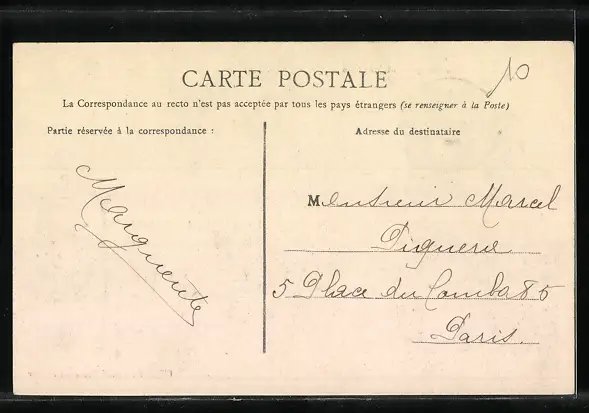 10
CARTE POSTALE
La Correspondance au recto n'est pas acceptée par tous les pays étrangers (se renseigner à la Poste)
Partie réservée à la correspondance :
Adresse du destinataire
Marguerite
Monsieur Marcel
5 Place du Combat 5
Paris.